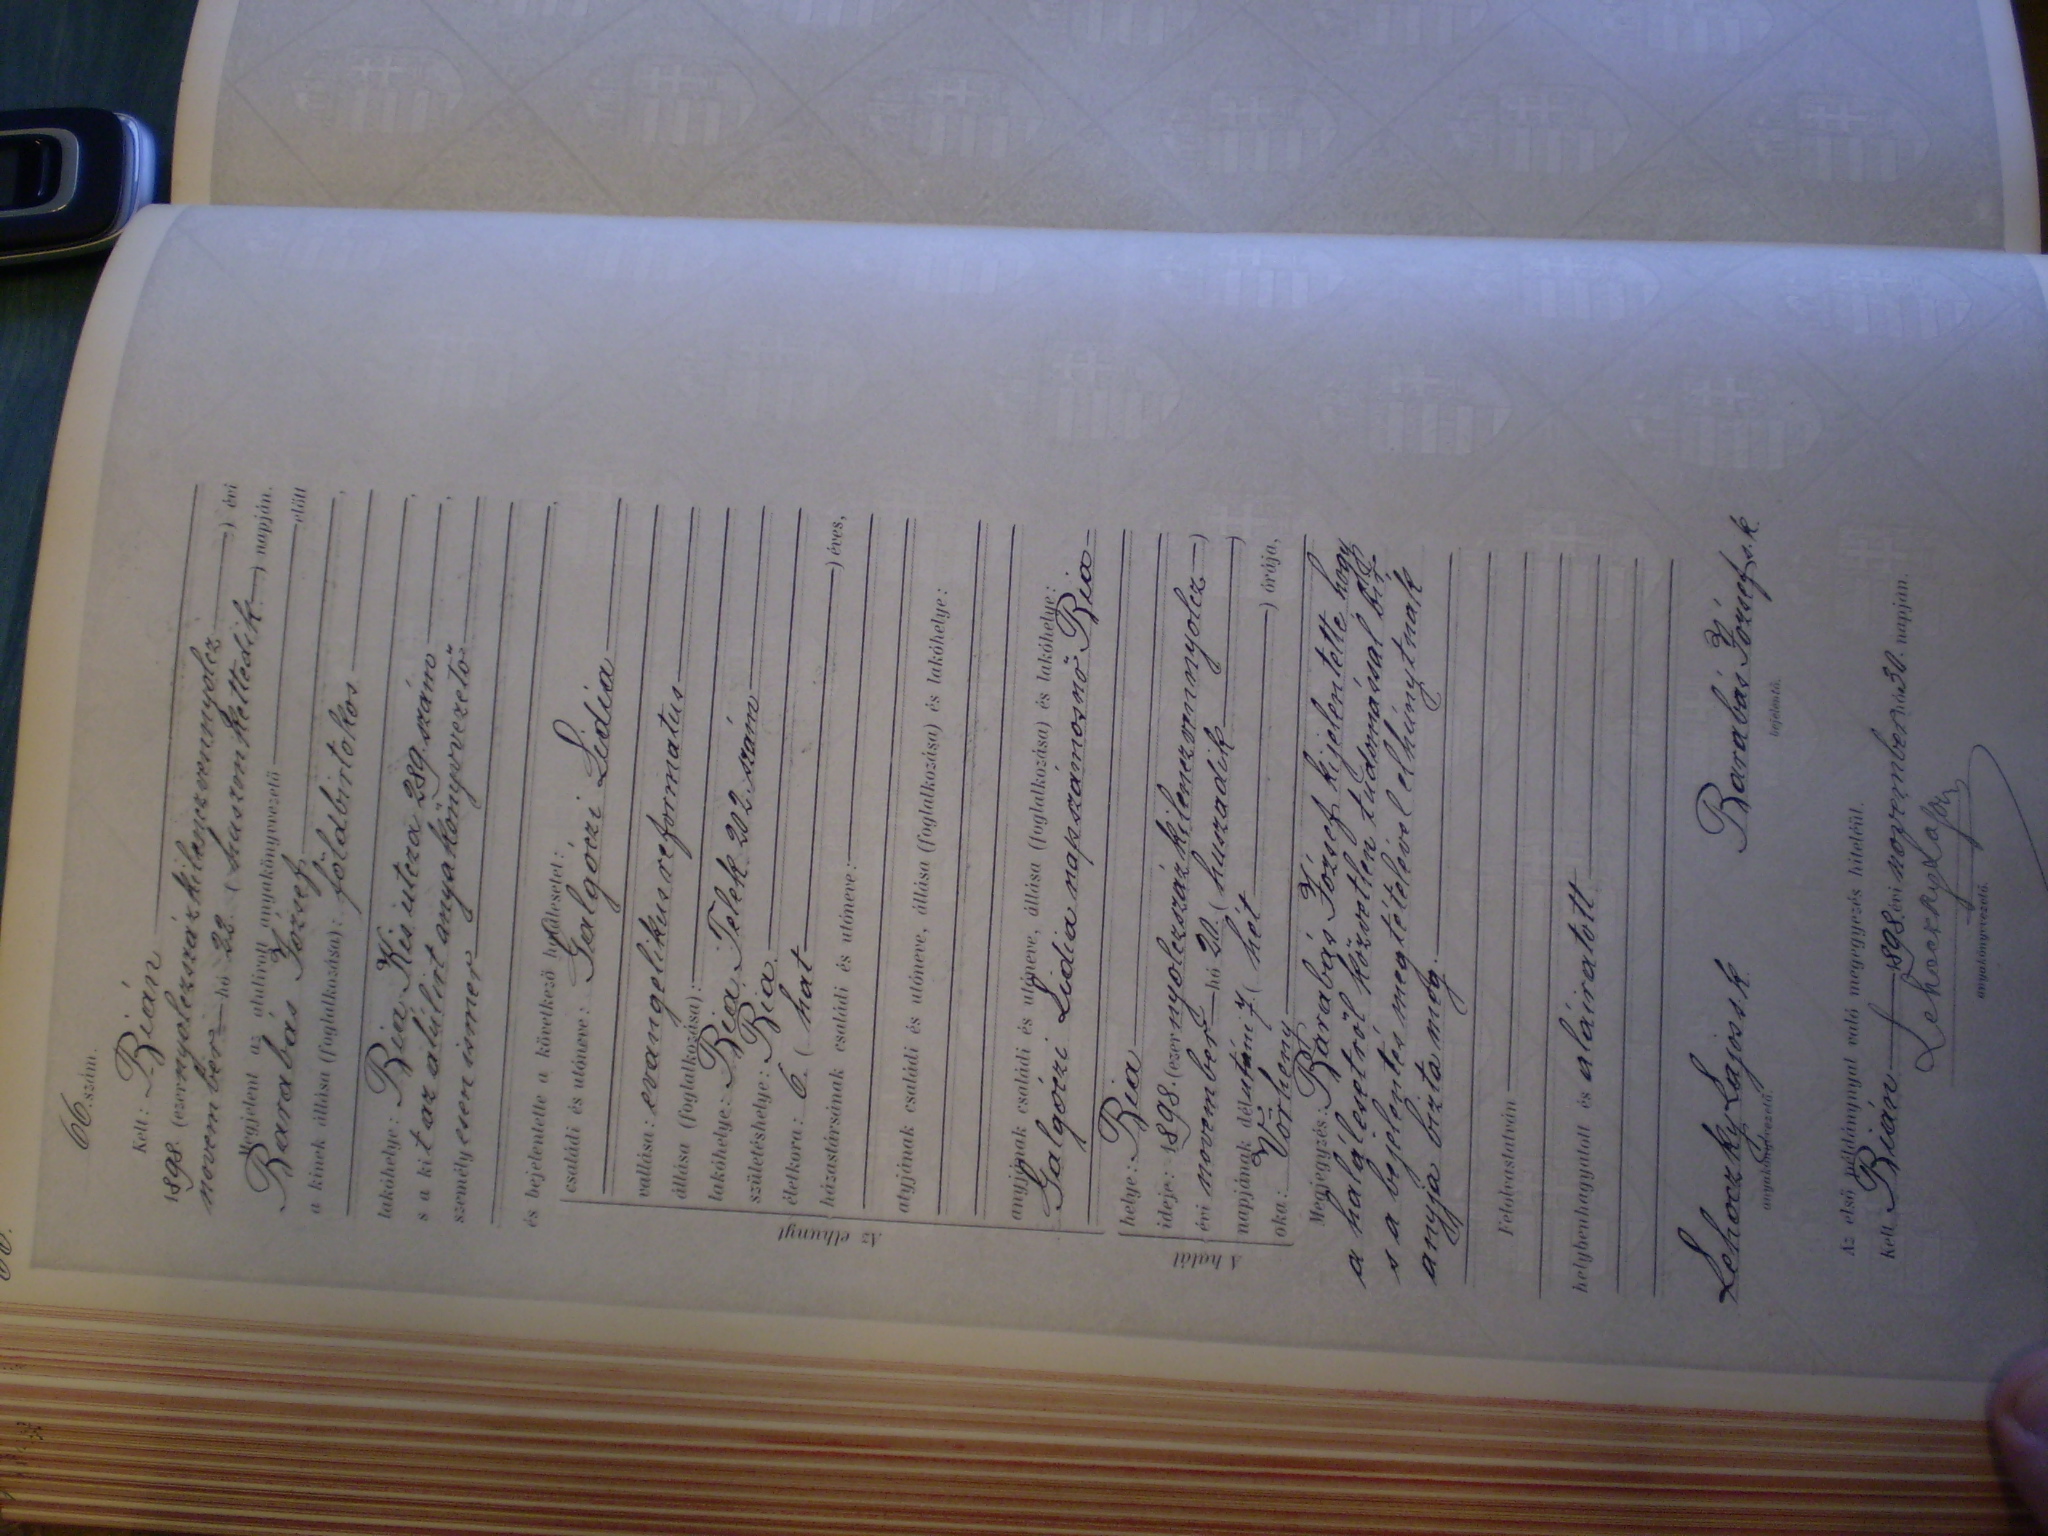 66. szám.
Kelt: Bián
1898. (ezernyolczszázkilenczvennyolcz) évi
november hó 22. (huszonkettedik) napján.
Megjelent az alulirott anyakönyvvezető előtt
Barabás József
a kinek állása (foglalkozása): földbirtokos,
lakóhelye: Bia Kis utcza 289. szám,
s a kit az alúlirt anyakönyvvezető
személyesen ismer,
és bejelentette a következő halálesetet:
Az elhunyt
családi és utóneve: Galgóczi Lidia
vallása: evangelikus reformatus
állása (foglalkozása):
lakóhelye: Bia, Telek 202. szám
születéshelye: Bia
életkora: 6. (hat) éves,
házastársának családi és utóneve:
atyjának családi és utóneve, állása (foglalkozása) és lakóhelye:
anyjának családi és utóneve, állása (foglalkozása) és lakóhelye:
Galgóczi Lidia napszámosnő Bia
A halál
helye: Bia
ideje: 1898. (ezernyolczszázkilenczvennyolcz)
évi november hó 20. (huszadik)
napjának délután 7. (hét) órája,
oka: Vörheny
Megjegyzés: Barabás József kijelentette hogy
a halálesetről közvetlen tudomással bir
s a bejelentés megtételével elhúnytnak
anyja bizta meg.
Felolvastatván
helybenhagyatott és aláiratott
Lehoczky Lajos s.k. Barabás József s.k.
anyakönyvvezető. bejelentő.
Az első példánynyal való megegyezés hiteléül.
Kelt Bián 1898. évi november hó 30. napján.
Lehoczky Lajos
anyakönyvvezető.